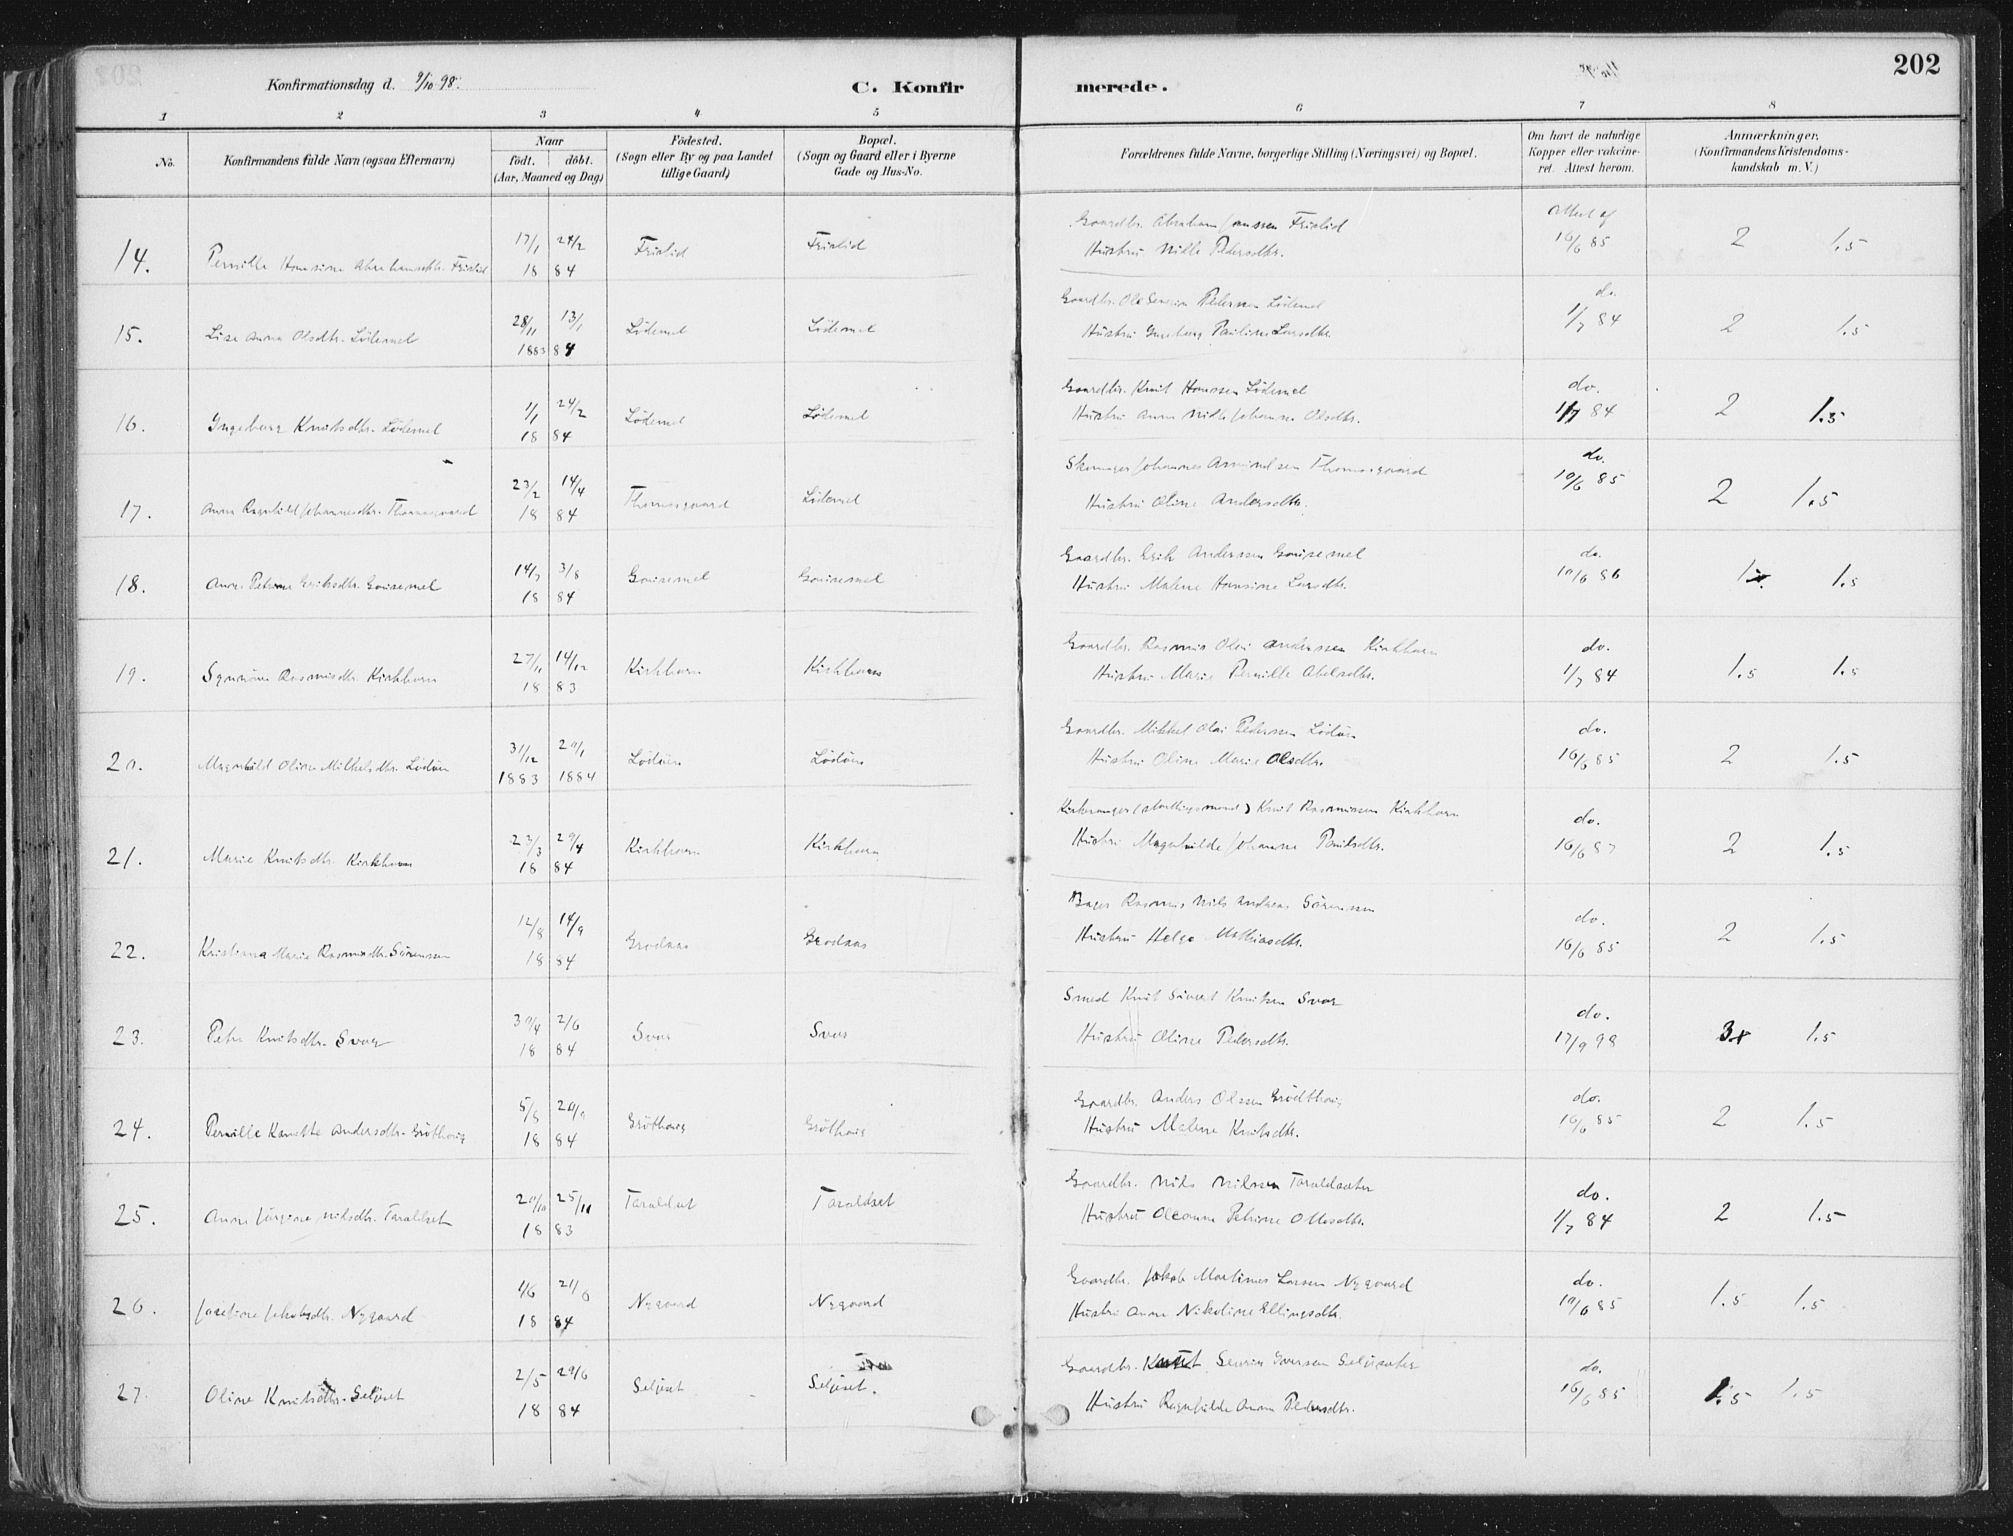 202
Konfirmationsdag d. 9/10 98.
C. Konfirmerede.
1 2 3 4 5 6 7 8
No.
Konfirmandens fulde Navn (ogsaa Efternavn)
Naar
födt. döbt.
(Aar, Maaned og Dag)
Födested.
(Sogn eller By og paa Landet
tillige Gaard)
Bopæl.
(Sogn og Gaard eller i Byerne
Gade og Hus-No.
Forældrenes fulde Navne, borgerlige Stilling (Næringsvei) og Bopæl.
Om havt de naturlige
Kopper eller vakcine-
ret. Attest herom.
Anmærkninger.
(Konfirmandens Kristendoms-
kundskab m. V.)
Gaardbr. Abraham Hanssen Frislid
Attest af
14. Pernille Hansine Abrahamsdtr. Frislid 17/1 24/2 Frislid Frislid 16/6 85 2 1.5
18 84 Hustru Nille Pedersdtr.
Gaardbr. Ole Severin Pedersen Lödemel do.
15. Lise Anna Olsdtr. Lödemel 28/11 13/1 Lödemel Lödemel 1/7 84 2 1.5
1883 84 Hustru Ingeborg Pauline Larsdtr.
Gaardbr. Knut Hanssen Lödemel do.
16. Ingeborg Knutsdtr. Lödemel 1/1 24/2 Lödemel Lödemel 1/7 84 2 1.5
18 84 Hustru Anna Nille Johanne Olsdtr.
Skomager Johannes Amundsen Thomasgaard do.
17. Anna Ragnhild Johannesdtr. Thomasgaard 23/2 14/4 Thomasgaard Lödemel 10/6 85 2 1.5
18 84 Hustru Oline Andersdtr.
Gaardbr. Erik Anderssen Gausemel do.
18. Anne Petrine Eriksdtr. Gausemel 14/7 3/8 Gausemel Gausemel 10/6 86 1.5
18 84 Hustru Malene Hansine Larsdtr.
Gaardbr. Rasmus Olai Anderssen Kirkhorn do.
19. Rasmusdtr. Kirkhorn 27/11 14/12 Kirkhorn Kirkhorn 1/7 84 1.5 1.5
18 83 Hustru Marie Pernille Abelsdtr.
Gaardbr. Mikkel Olai Pedersen Lödöen do.
20. Magnhild Oline Mikkelsdtr. Lödöen 31/12 20/1 Lödöen Lödöen 16/6 85 2 1.5
1883 1884 Hustru Oline Marie Olsdtr.
Kirkesanger (stortingsmand) Knut Rasmussen Kirkhorn do.
21. Marie Knutsdtr. Kirkhorn 23/3 29/4 Kirkhorn Kirkhorn 16/6 87 2 1.5
18 84 Hustru Magnhilde Johanne Paulsdtr.
Bager Rasmus Nils Andreas Sörenssen do.
22. Kristiana Marie Rasmusdtr. Sörenssen 12/8 14/9 Grodaas Grodaas 16/6 85 2 1.5
18 84 Hustru Helge Mathiasdtr.
Smed Knut Sivert Knutsen Svor do.
23. Petra Knutsdtr. Svor 30/4 2/6 Svor Svor 17/9 98 3+ 1.5
18 84 Hustru Oline Pedersdtr.
Gaardbr. Anders Olssen Grödthaug do.
24. Pernille Knutte Andersdtr. Gröthaug 5/8 20/9 Gröthaug Gröthaug 16/6 85 2 1.5
18 84 Hustru Malene Knutsdtr.
Gaardbr. Nils Nilssen Taraldsæter do.
25. Anne Jörgine Nilsdtr. Taraldset 20/10 25/11 Taraldset Taraldset 1/7 84 2 1.5
18 83 Hustru Oleanna Petrine Ottesdtr.
Gaardbr. Jakob Martinus Larsen Nygaard do.
26. Josefine Jakobsdtr. Nygaard 1/6 21/6 Nygaard Nygaard 10/6 85 1.5 1.5
18 84 Hustru Anne Nikoline Ellingsdtr.
Gaardbr. Knut Severin Iversen Seljesæter do.
27. Oline Knutsdtr. Seljeset 2/5 29/6 Seljeset Seljeset. 16/6 85 1.5 1.5
18 84 Hustru Ragnhilde Anna Pedersdtr.